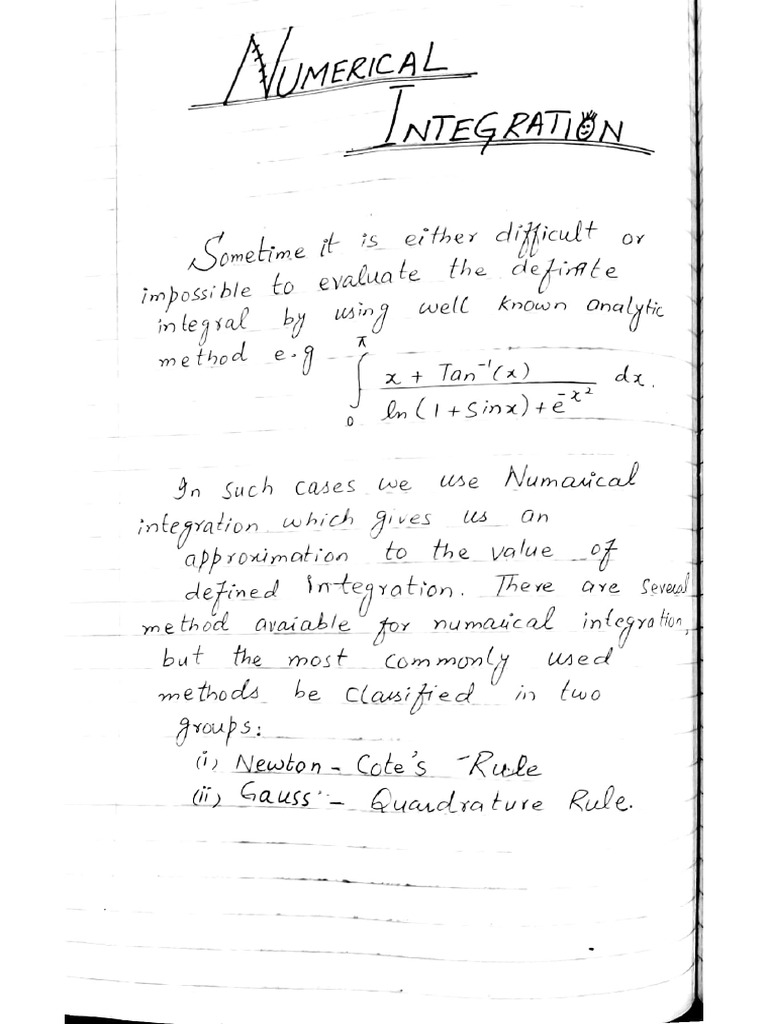 NUMERICAL
INTEGRATION
Sometime it is either difficult or
impossible to evaluate the definite
integral by using well known analytic
method e.g ∫₀^π (x + Tan⁻¹(x)) / (ln(1+Sinx)+e^(-x²)) dx.
In such cases we use Numarical
integration which gives us an
approximation to the value of
defined integration. There are several
method avaiable for numarical integration,
but the most commonly used
methods be classified in two
groups:
(i) Newton - Cote's Rule
(ii) Gauss - Quardrature Rule.